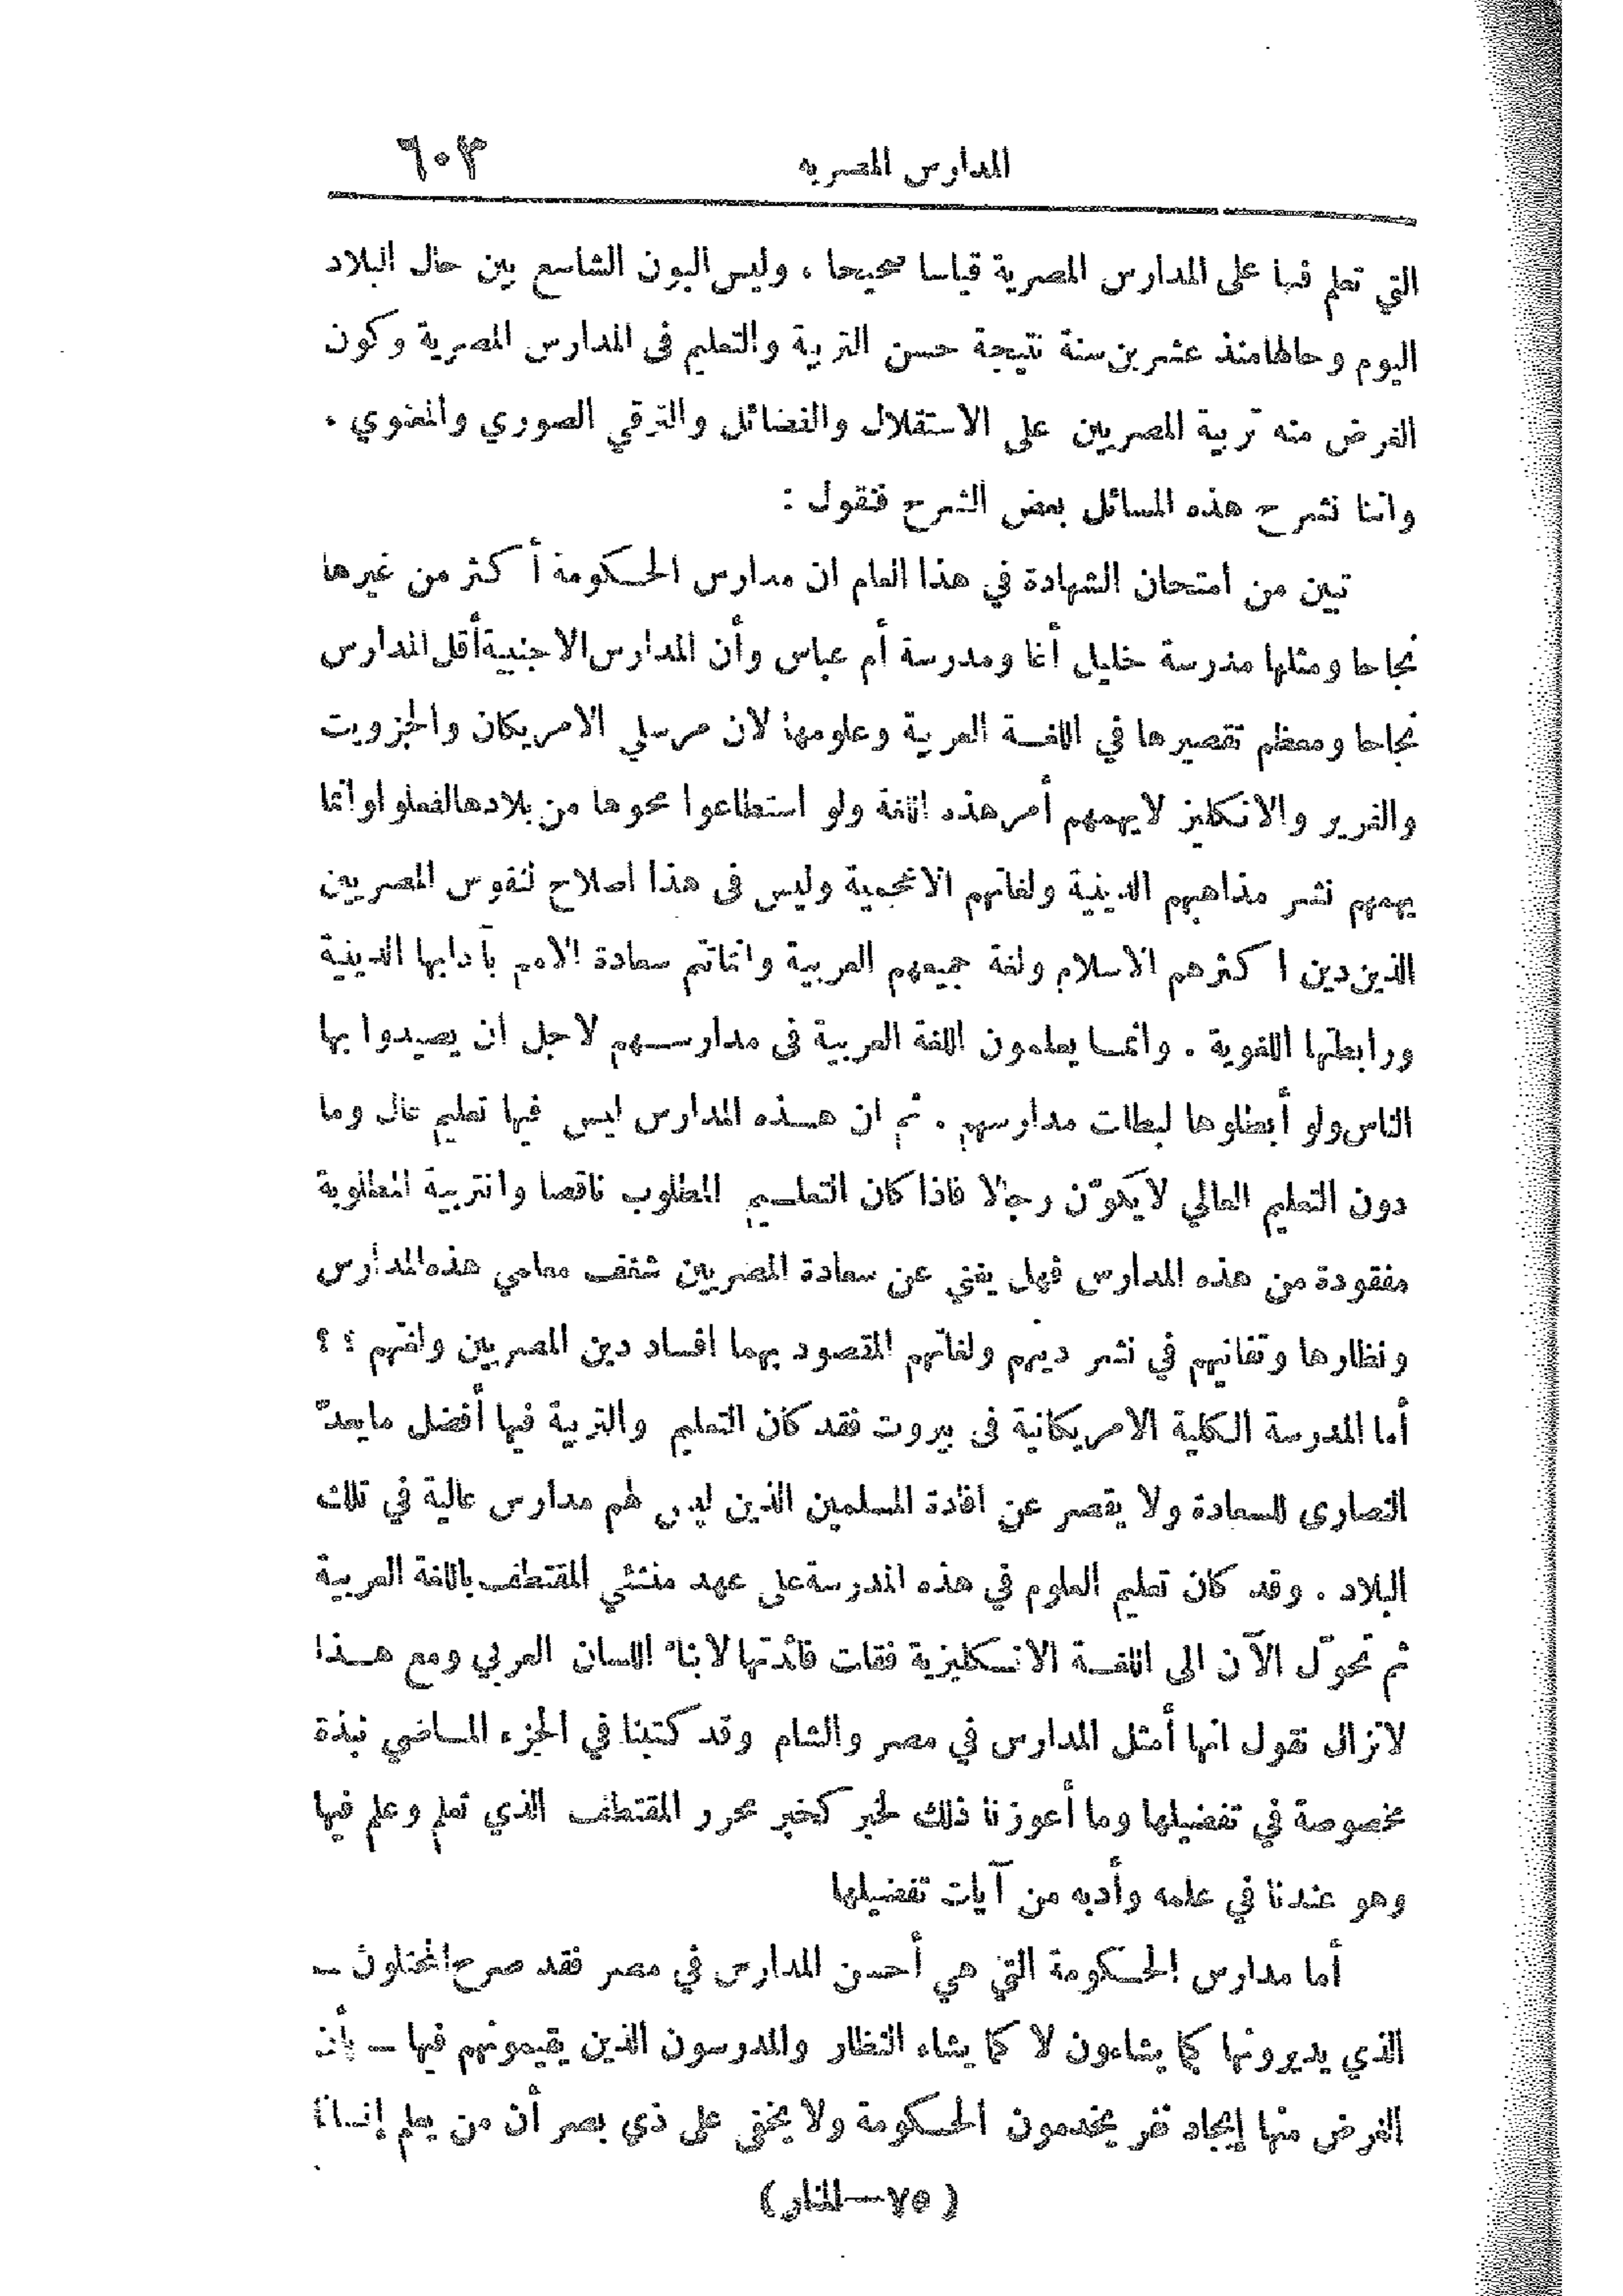 المدارس المصرية ٦٠٣
التي تعلم فيها على المدارس المصرية قياسا صحيحا ، وليس البون الشاسع بين حال البلاد
اليوم وحالها منذ عشرين سنة نتيجة حسن التربية والتعليم في المدارس المصرية وكون
الغرض منه تربية المصريين على الاستقلال والفضائل والترقي الصوري والمعنوي .
واننا نشرح هذه المسائل بعض الشرح فنقول :
تبين من امتحان الشهادة في هذا العام ان مدارس الحكومة أكثر من غيرها
نجاحا ومثلها مدرسة خليل أغا ومدرسة أم عباس وأن المدارس الاجنبية أقل المدارس
نجاحا ومعظم تقصيرها في اللغة العربية وعلومها لان مرسلي الامريكان والجزويت
والفرير والانكليز لايهمهم أمر هذه اللغة ولو استطاعوا محوها من بلادها لفعلوا وانما
يهمهم نشر مذاهبهم الدينية ولغاتهم الاعجمية وليس في هذا اصلاح لنفوس المصريين
الذين دين اكثرهم الاسلام ولغة جميعهم العربية وانما تتم سعادة الامم بآدابها الدينية
ورابطتها اللغوية . وانما يعلمون اللغة العربية في مدارسهم لاجل ان يصيدوا بها
الناس ولو أبطلوها لبطلت مدارسهم . ثم ان هذه المدارس ليس فيها تعليم عال وما
دون التعليم العالي لايكوّن رجالا فاذا كان التعليم المطلوب ناقصا والتربية المطلوبة
مفقودة من هذه المدارس فهل يغني عن سعادة المصريين شغف معلمي هذه المدارس
ونظارها وتفانيهم في نشر دينهم ولغاتهم المقصود بهما افساد دين المصريين ولغتهم ؟ ؟
أما المدرسة الكلية الامريكانية في بيروت فقد كان التعليم والتربية فيها أفضل مايعدّ
النصارى للسعادة ولا يقصر عن افادة المسلمين الذين ليس لهم مدارس عالية في تلك
البلاد . وقد كان تعليم العلوم في هذه المدرسة على عهد منشئي المقتطف باللغة العربية
ثم تحوّل الآن الى اللغة الانكليزية فقلت فائدتها لابناء اللسان العربي ومع هذا
لانزال نقول انها أمثل المدارس في مصر والشام وقد كتبنا في الجزء الماضي نبذة
مخصوصة في تفضيلها وما أعوزنا ذلك لخبر كخبر محرر المقتطف الذي تعلم وعلم فيها
وهو عندنا في علمه وأدبه من آيات تفضيلها
أما مدارس الحكومة التي هي أحسن المدارس في مصر فقد صرح المحتلون —
الذي يديرونها كما يشاءون لا كما يشاء النظار والمدرسون الذين يقيمونهم فيها — بأن
الغرض منها إيجاد نفر يخدمون الحكومة ولا يخفى على ذي بصر أن من يعلم إنسانا
( ٧٥ — المنار )